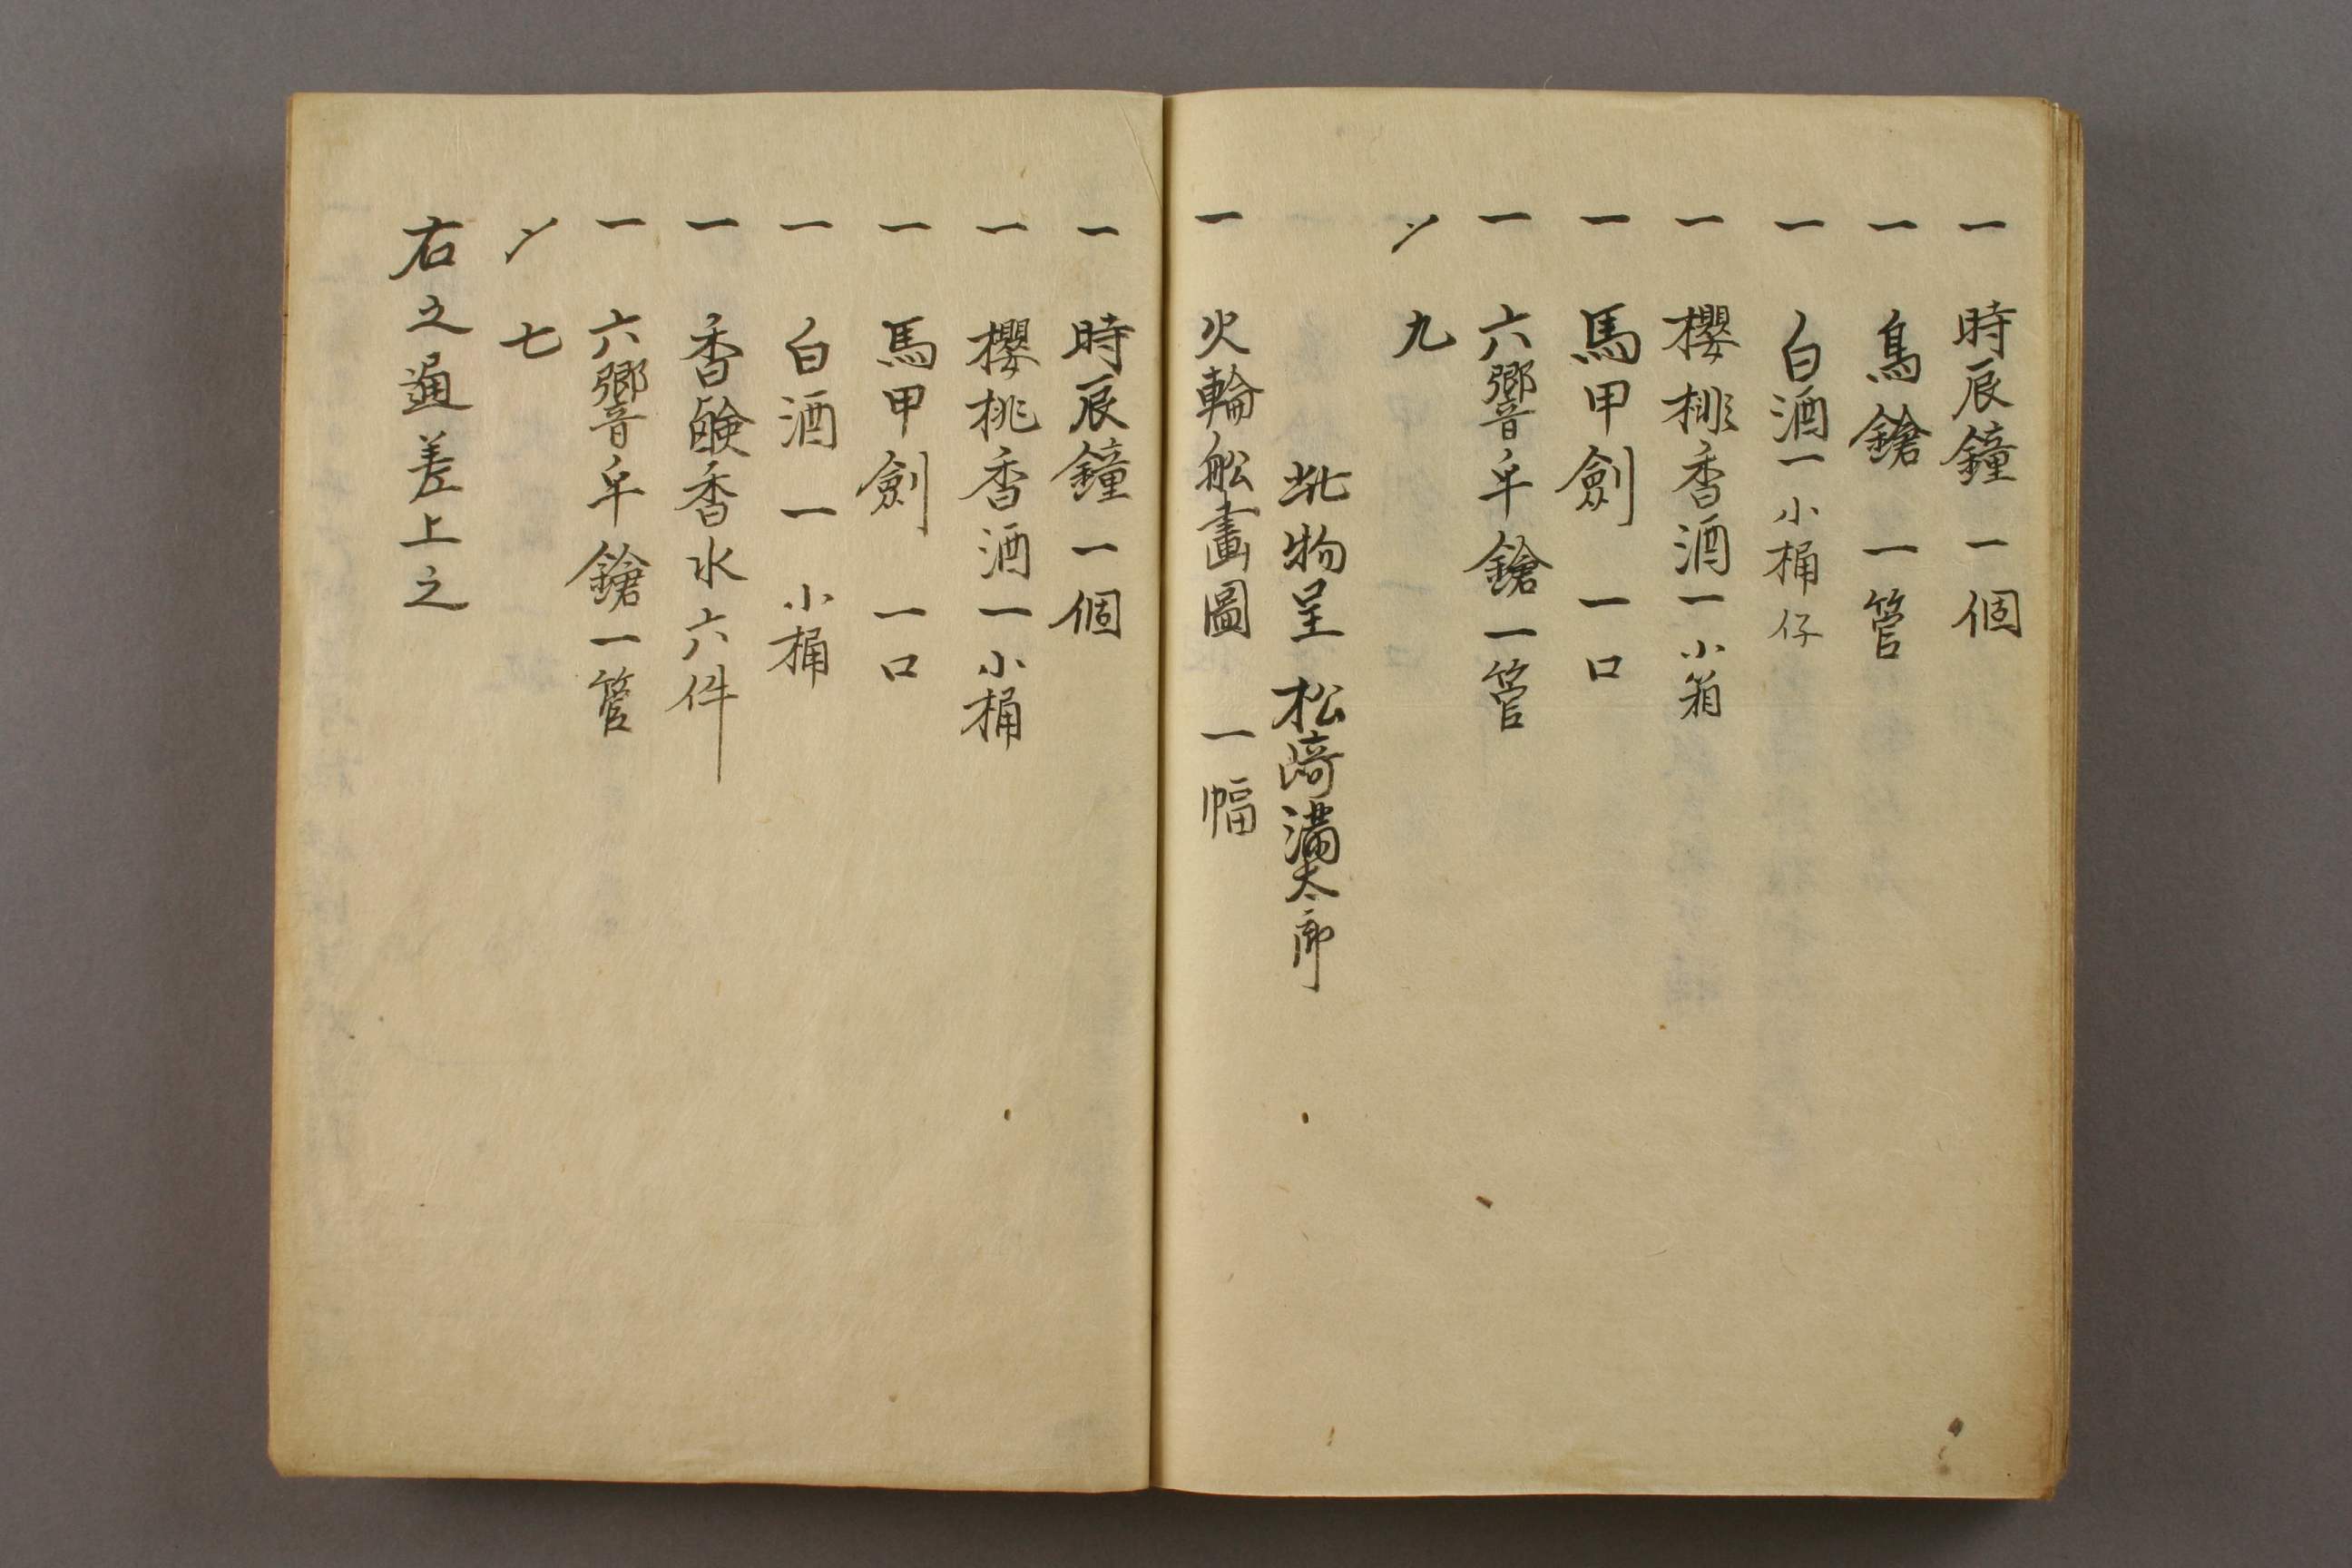 一 時辰鐘一個
一 鳥鎗 一管
一 白酒一小桶仔
一 櫻桃香酒一小箱
一 馬甲劍 一口
一 六響手鎗一管
〆 九
此物呈 松﨑満太郎
一 火輪舩畫圖 一幅
一 時辰鐘一個
一 櫻桃香酒一小桶
一 馬甲劍 一口
一 白酒 一小桶
一 香鹼香水六件
一 六響手鎗一管
〆 七
右之通差上之